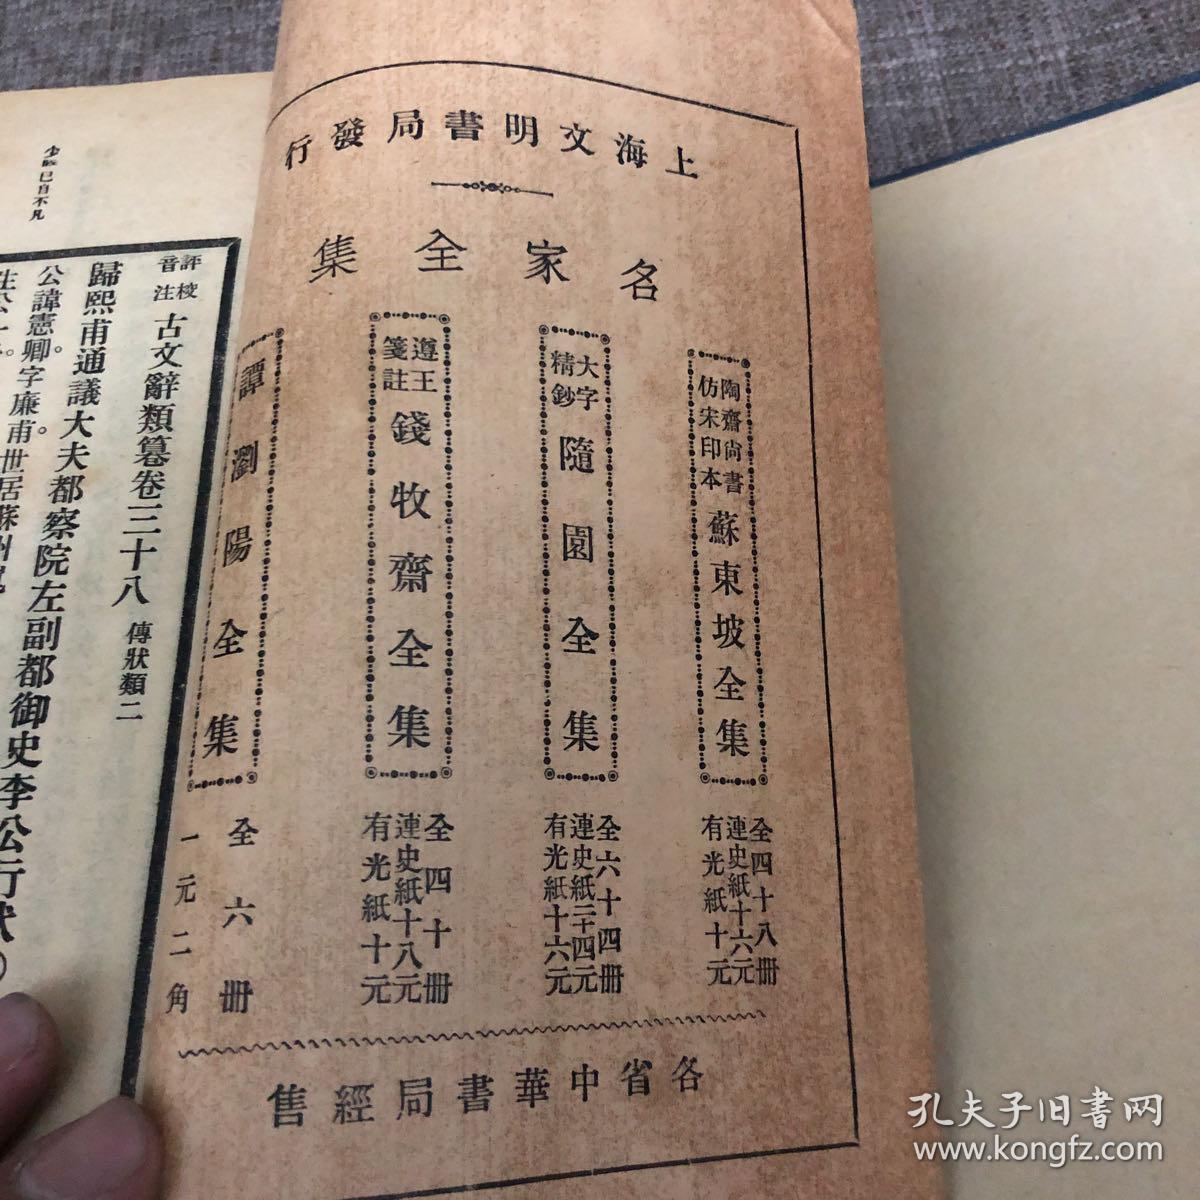 上海文明書局發行
名家全集
陶齋尚書
仿宋印本
蘇東坡全集
全四十八冊
連史紙十六元
有光紙十元
大字
精鈔
隨園全集
全六十四冊
連史紙二十四元
有光紙十六元
遵王
箋註
錢牧齋全集
全四十冊
連史紙十八元
有光紙十元
譚瀏陽全集
全六冊
一元二角
各省中華書局經售
評校
音注
古文辭類篹卷三十八 傳狀類二
歸熙甫通議大夫都察院左副都御史李公行狀
公諱憲卿。字廉甫。世居蘇州
已自不凡
孔夫子旧書网
www.kongfz.com